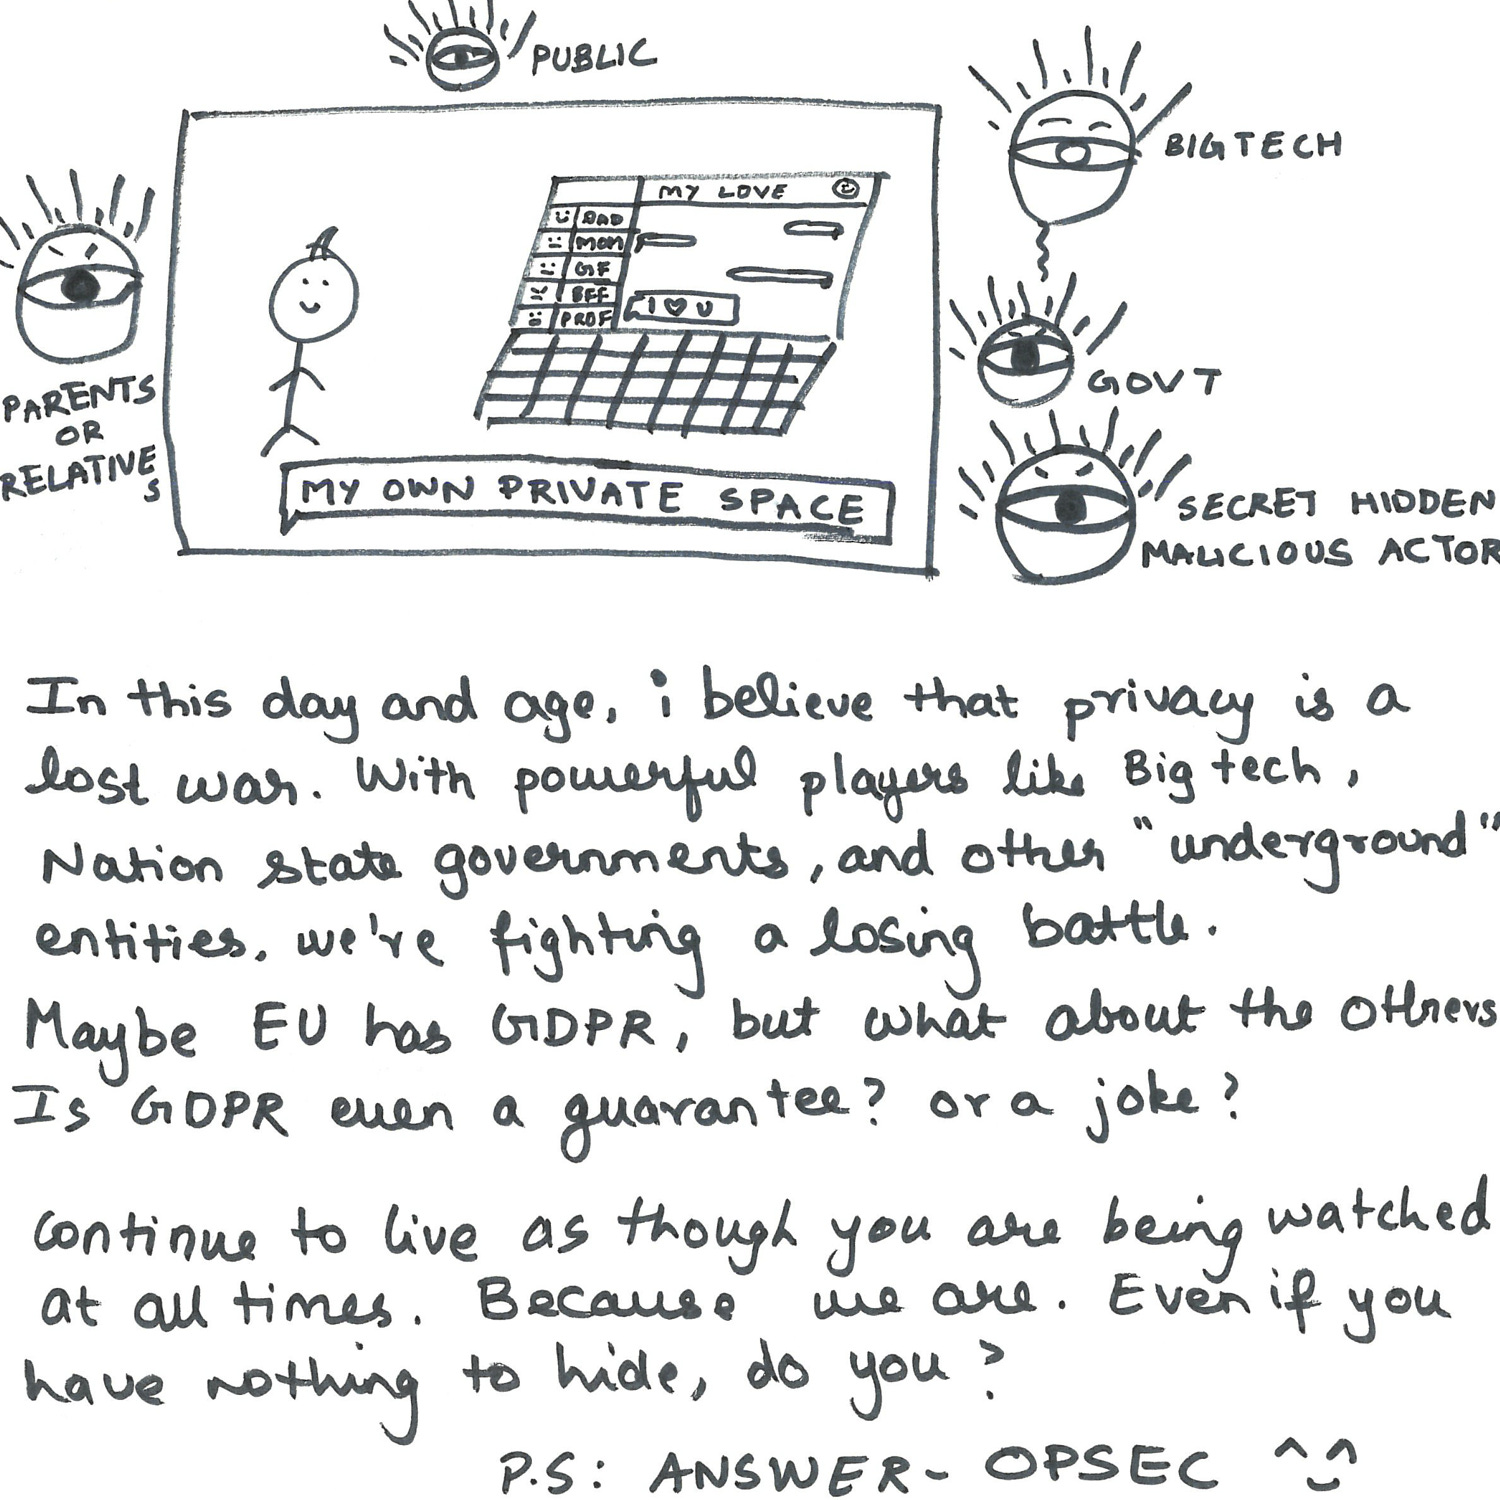 PUBLIC
BIGTECH
MY LOVE
DAD
MOM
GF
BFF
PROF
I ♥ U
PARENTS
OR
RELATIVE
S
GOVT
MY OWN PRIVATE SPACE
SECRET HIDDEN
MALICIOUS ACTOR
In this day and age, i believe that privacy is a
lost war. With powerful players like Big tech,
Nation state governments, and other "underground"
entities, we're fighting a losing battle.
Maybe EU has GDPR, but what about the others
Is GDPR even a guarantee? or a joke?
continue to live as though you are being watched
at all times. Because we are. Even if you
have nothing to hide, do you?
P.S: ANSWER - OPSEC ^‿^